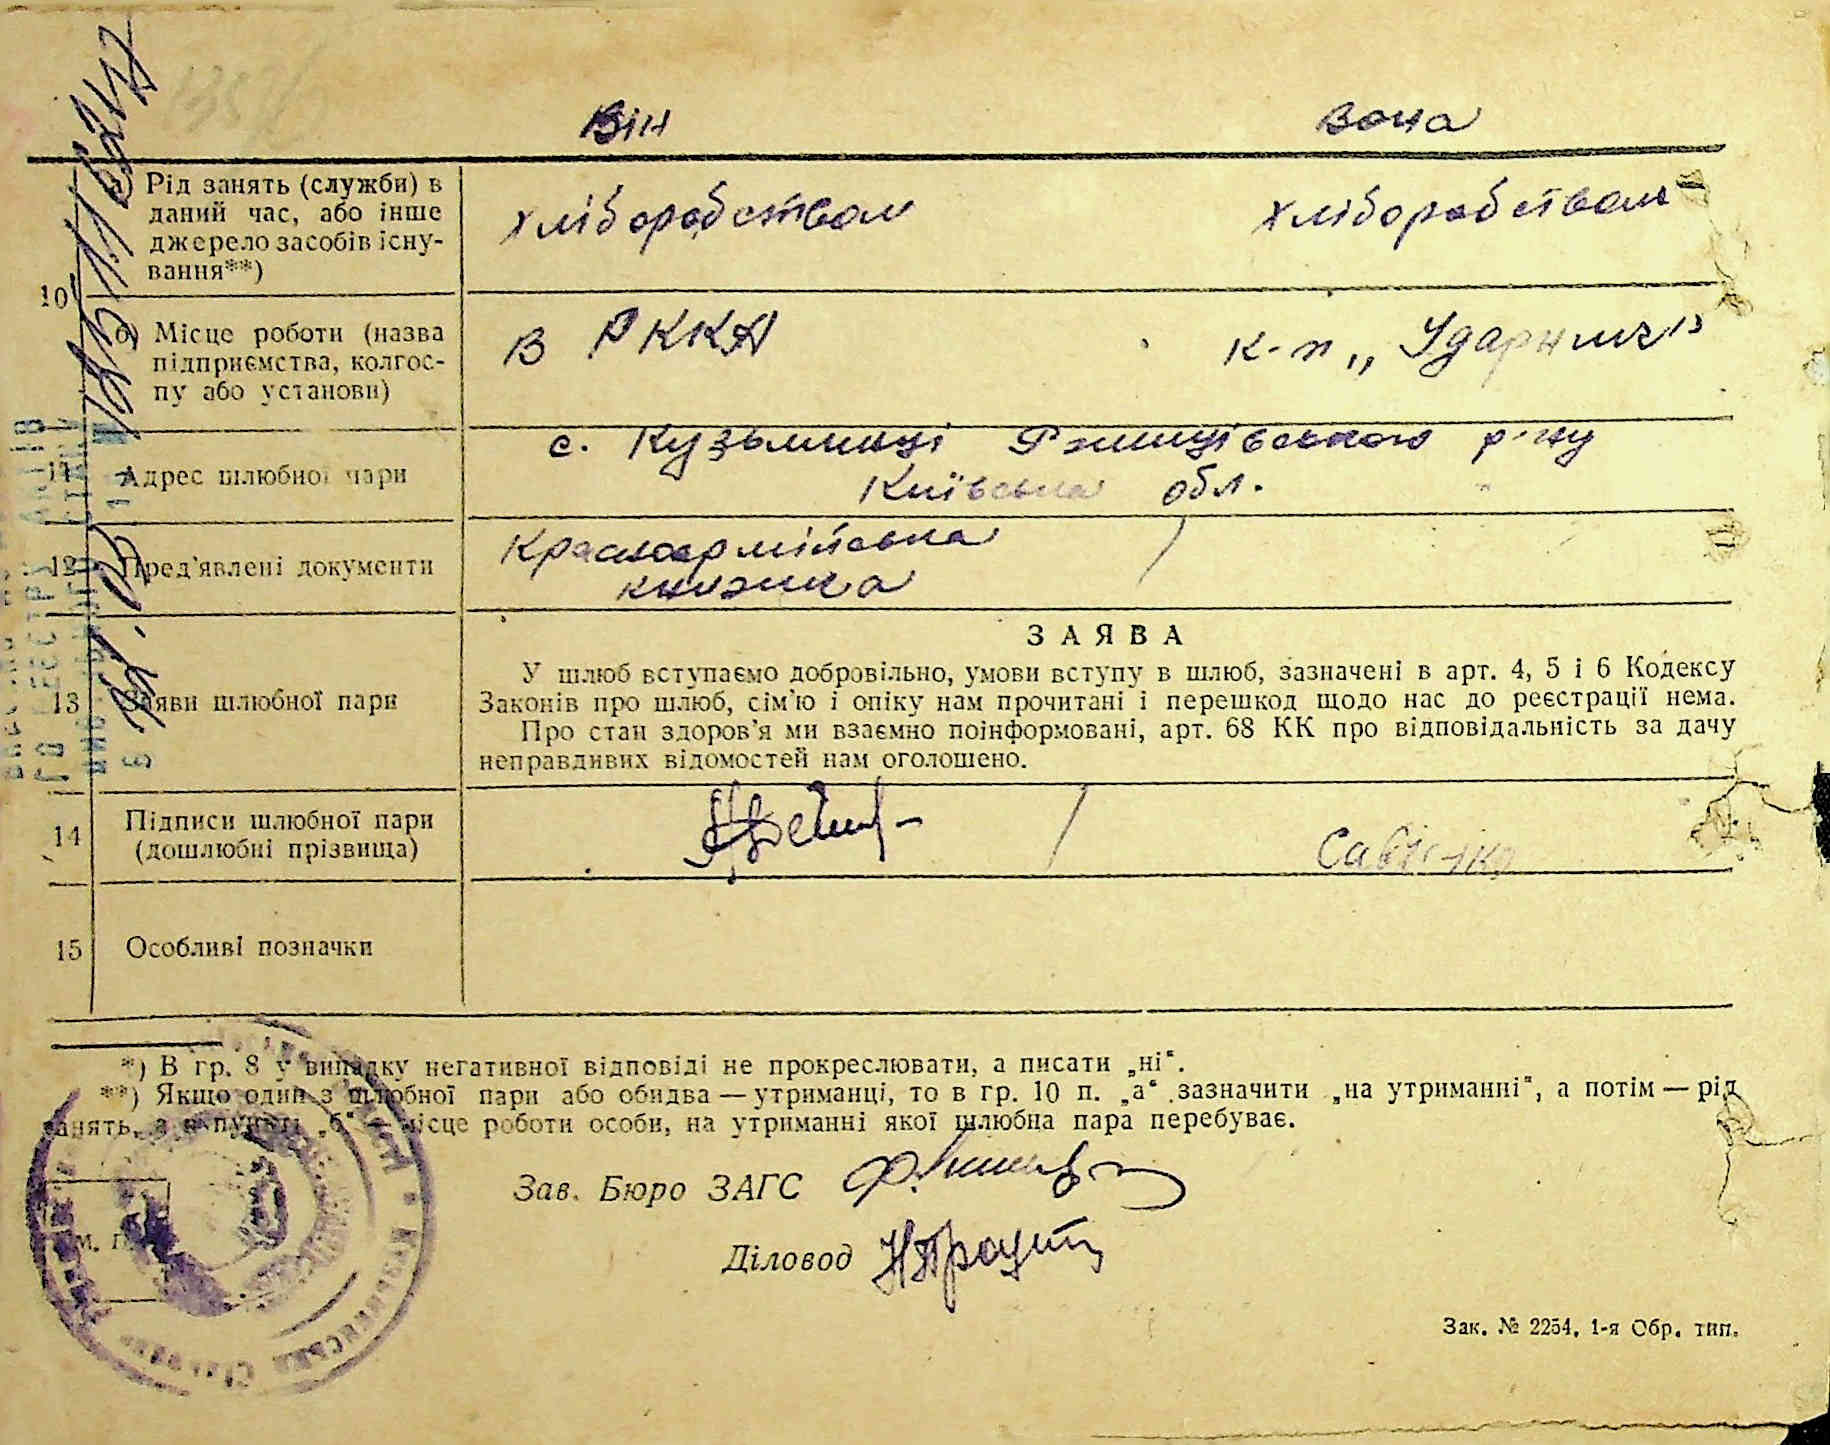 Він Вона
10 а) Рід занять (служби) в
даний час, або інше
джерело засобів існу-
вання**)
хліборобством хліборобством
б) Місце роботи (назва
підприємства, колгос-
пу або установи)
в РККА к-п „Ударник"
11 Адрес шлюбної пари
с. Кузьминці Ржищівського р-ну
Київська обл.
12 Пред'явлені документи
Красноармійська
книжка
13 Заяви шлюбної пари
ЗАЯВА
У шлюб вступаємо добровільно, умови вступу в шлюб, зазначені в арт. 4, 5 і 6 Кодексу
Законів про шлюб, сім'ю і опіку нам прочитані і перешкод щодо нас до реєстрації нема.
Про стан здоров'я ми взаємно поінформовані, арт. 68 КК про відповідальність за дачу
неправдивих відомостей нам оголошено.
14 Підписи шлюбної пари
(дошлюбні прізвища)
15 Особливі позначки
*) В гр. 8 у випадку негативної відповіді не прокреслювати, а писати „ні".
**) Якщо один з шлюбної пари або обидва — утриманці, то в гр. 10 п. „а" зазначити „на утриманні", а потім — рід
занять, а в пункті „б" — місце роботи особи, на утриманні якої шлюбна пара перебуває.
Зав. Бюро ЗАГС
Діловод
м. п.
Зак. № 2254, 1-я Обр. тип.